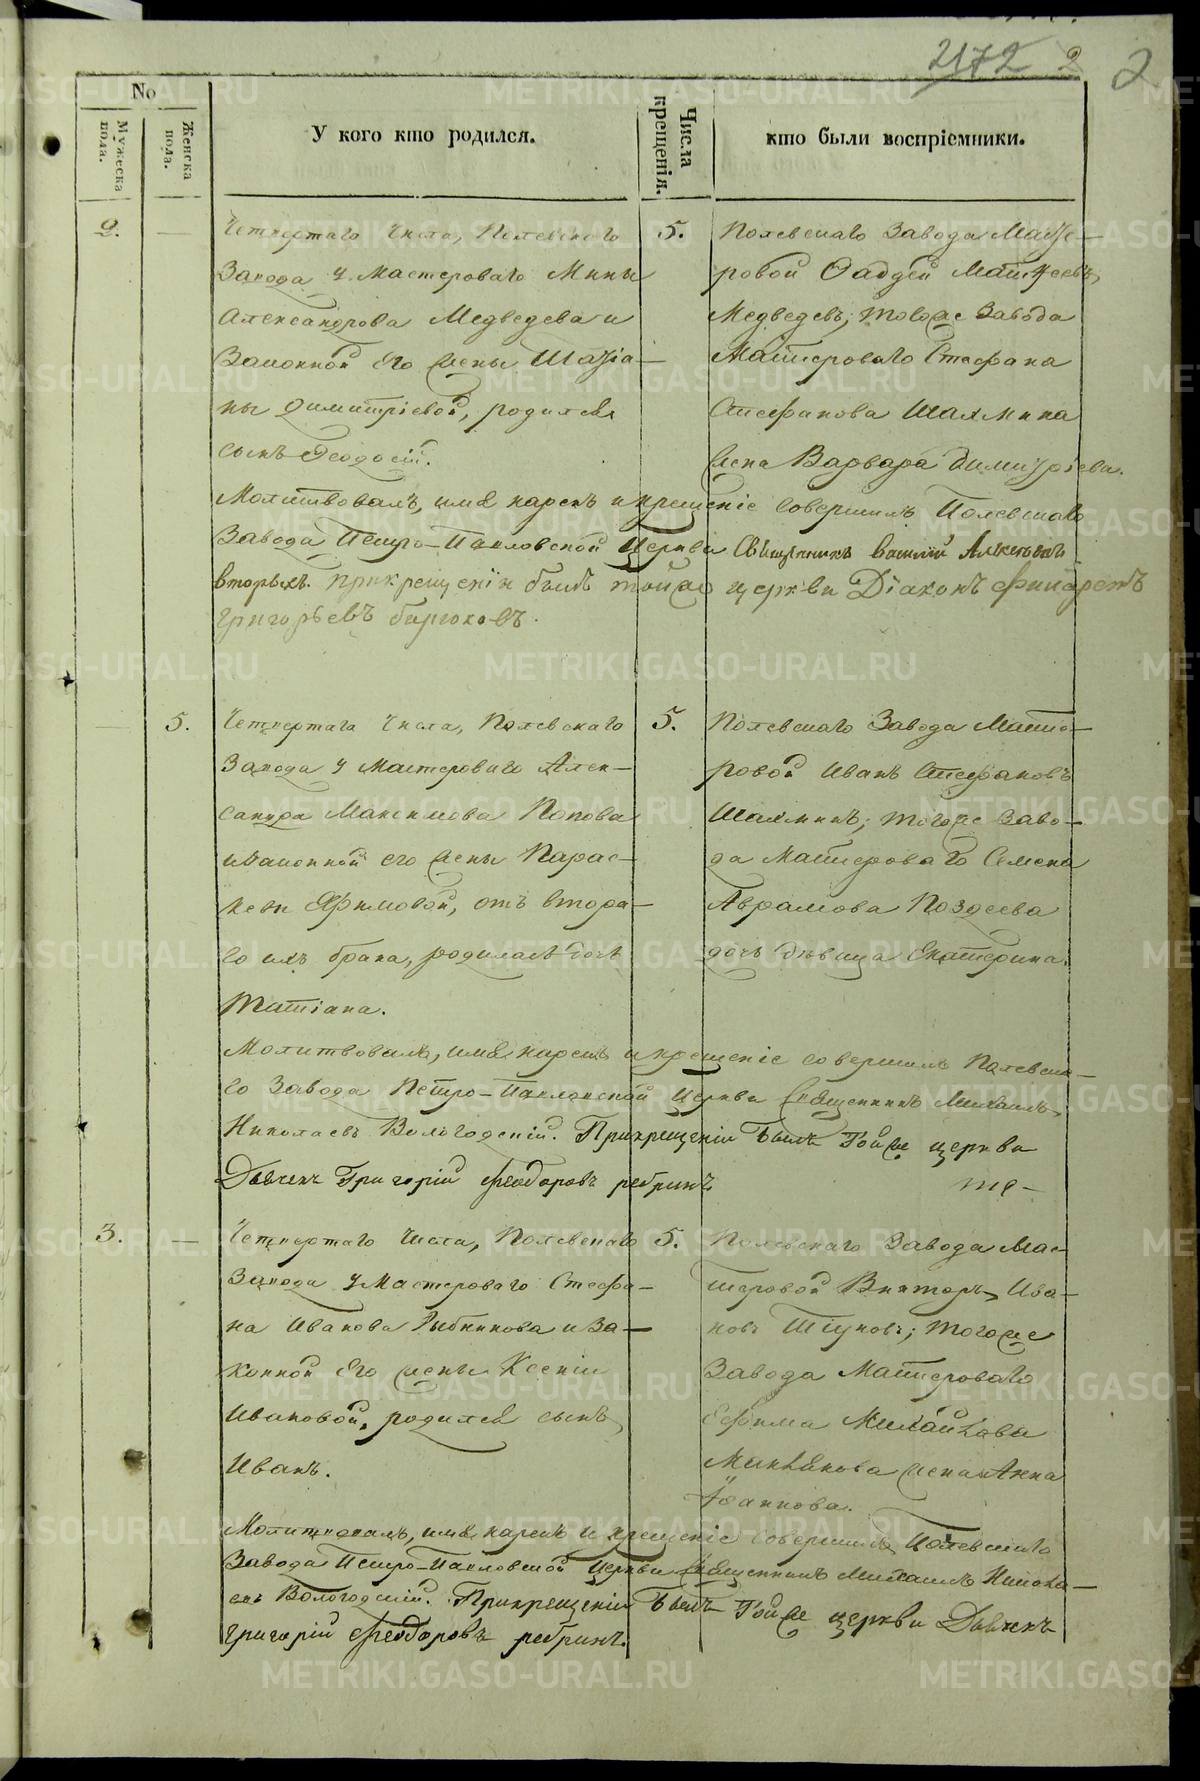 2172 2 2
No
Мужеска пола.
Женска пола.
У кого кто родился.
Числа крещенія.
кто были воспріемники.
2. — 5.
Четвертаго числа, Полевскаго
Завода у мастероваго Мины
Александрова Медведева и
Законной его жены Татіа—
ны Димитріевой, родился
сынъ Ѳеодосій.
Полевскаго Завода Масте—
ровой Фаддей Матѳеевъ
Медведевъ; тогоже Завода
Мастероваго Стефана
Стефанова Шахмина
жена Варвара Димитріева.
Молитвовалъ, имя нарекъ и крещеніе совершилъ Полевскаго
Завода Петро-Павловской Церкви Священникъ Василій
вторыхъ. При крещеніи былъ тойже церкви Діаконъ
Григорьевъ Бирюковъ.
5. 5.
Четвертага числа, Полевскаго
Завода у мастероваго Алек—
сандра Максимова Попова
и законной его жены Парас—
кевы Ефимовой, отъ втора—
го ихъ брака, родилась дочь
Татіана.
Полевскаго Завода Масте—
ровой Иванъ Стефановъ
Шахминъ; тогоже Заво—
да Мастероваго Семена
Аврамова Поздеева
дочь девица Екатерина.
Молитвовалъ, имя нарекъ и крещеніе совершилъ Полевска—
го Завода Петро-Павловской Церкви Священникъ Михаилъ
Николаевъ Вологодскій. При крещеніи былъ тойже церкви
Дьячекъ Григорій Феодоровъ ребринъ
3. — 5.
Четвертаго числа, Полевскаго
Завода у мастероваго Стефа—
на Иванова Рыбникова и за—
конной его жены Ксеніи
Ивановой, родился сынъ
Иванъ.
Полевскаго Завода Мас—
теровой Викторъ Ива—
новъ Тіуновъ; тогоже
Завода Мастероваго
Ефима Михайлова
жена Анна
Іоаннова.
Молитвовалъ, имя нарекъ и крещеніе совершилъ Полевскаго
Завода Петро-Павловской Церкви Священникъ Михаилъ Никола—
евъ Вологодскій. При крещеніи былъ тойже церкви Дьячекъ
григорій Феодоровъ ребринъ.
METRIKI.GASO-URAL.RU